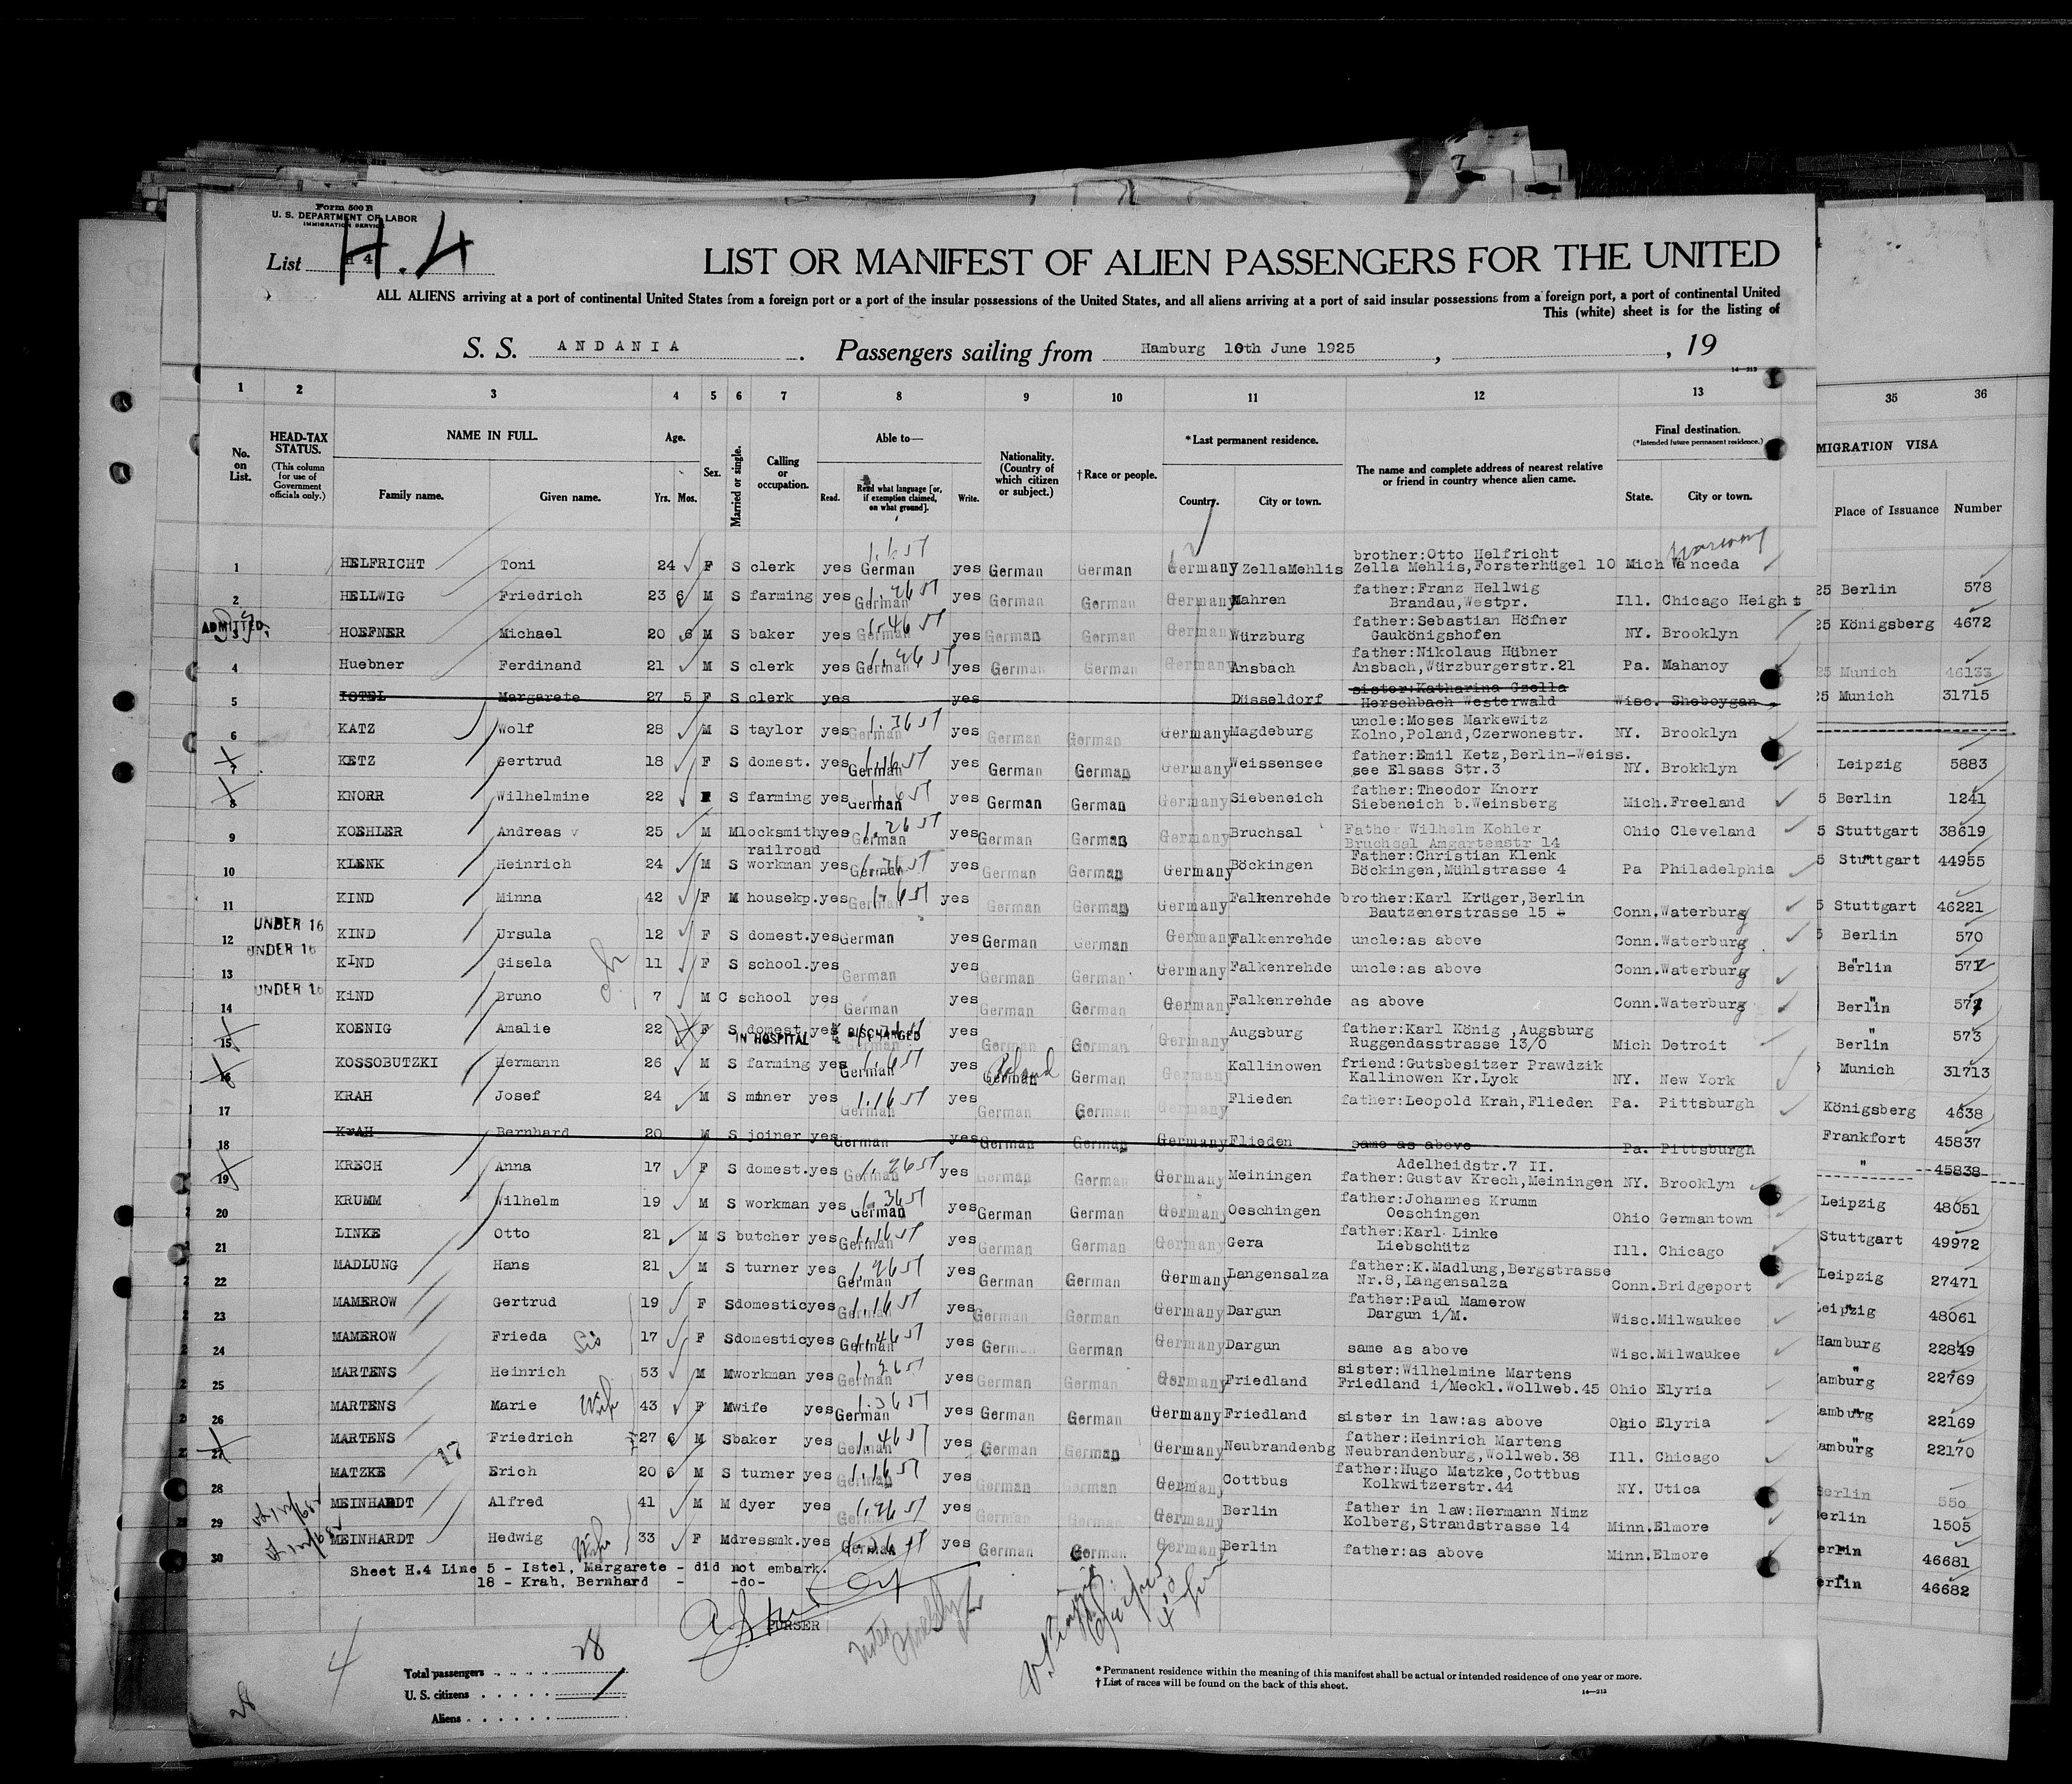 Form 500 B
U. S. DEPARTMENT OF LABOR
IMMIGRATION SERVICE
List H 4
H.4
LIST OR MANIFEST OF ALIEN PASSENGERS FOR THE UNITED
ALL ALIENS arriving at a port of continental United States from a foreign port or a port of the insular possessions of the United States, and all aliens arriving at a port of said insular possessions from a foreign port, a port of continental United
This (white) sheet is for the listing of
S. S. ANDANIA. Passengers sailing from Hamburg 10th June 1925, , 19
14—213
1 2 3 4 5 6 7 8 9 10 11 12 13 35 36
No. on List.
HEAD-TAX STATUS. (This column for use of Government officials only.)
NAME IN FULL.
Family name. Given name.
Age. Yrs. Mos.
Sex.
Married or single.
Calling or occupation.
Able to—
Read. Read what language [or, if exemption claimed, on what ground]. Write.
Nationality. (Country of which citizen or subject.)
† Race or people.
*Last permanent residence.
Country. City or town.
The name and complete address of nearest relative or friend in country whence alien came.
Final destination. (*Intended future permanent residence.)
State. City or town.
MIGRATION VISA
Place of Issuance Number
1 HELFRICHT Toni 24 F S clerk yes German yes German German Germany ZellaMehlis brother:Otto Helfricht Zella Mehlis,Forsterhügel 10 Mich Vanceda
2 HELLWIG Friedrich 23 6 M S farming yes German yes German German Germany Mahren father:Franz Hellwig Brandau,Westpr. Ill. Chicago Heights
ADMITTED
3 HOEFNER Michael 20 6 M S baker yes German yes German German Germany Würzburg father:Sebastian Höfner Gaukönigshofen NY. Brooklyn
4 Huebner Ferdinand 21 M S clerk yes German yes German German Germany Ansbach father:Nikolaus Hübner Ansbach,Würzburgerstr.21 Pa. Mahanoy
5 ISTEL Margarete 27 5 F S clerk yes yes Düsseldorf sister:Katharina Czella Herschbach Westerwald Wisc. Sheboygan
6 KATZ Wolf 28 M S taylor yes German yes German German Germany Magdeburg uncle:Moses Markewitz Kolno,Poland,Czerwonestr. NY. Brooklyn
7 KETZ Gertrud 18 F S domest. yes German yes German German Germany Weissensee father:Emil Ketz,Berlin-Weiss. see Elsass Str.3 NY. Brokklyn
8 KNORR Wilhelmine 22 F S farming yes German yes German German Germany Siebeneich father:Theodor Knorr Siebeneich b.Weinsberg Mich.Freeland
9 KOEHLER Andreas 25 M M locksmith yes German yes German German Germany Bruchsal Father Wilhelm Kohler Bruchsal Amgartenstr 14 Ohio Cleveland
10 KLENK Heinrich 24 M S railroad workman yes German yes German German Germany Böckingen Father:Christian Klenk Böckingen,Mühlstrasse 4 Pa Philadelphia
11 KIND Minna 42 F M housekp. yes German yes German German Germany Falkenrehde brother:Karl Krüger,Berlin Bautzenerstrasse 15 Conn.Waterburg
UNDER 16
12 KIND Ursula 12 F S domest. yes German yes German German Germany Falkenrehde uncle:as above Conn.Waterburg
UNDER 16
13 KIND Gisela 11 F S school. yes German yes German German Germany Falkenrehde uncle:as above Conn.Waterburg
UNDER 16
14 KiND Bruno 7 M C school yes German yes German German Germany Falkenrehde as above Conn.Waterburg
15 KOENIG Amalie 22 F S domest. yes yes German German Germany Augsburg father:Karl König ,Augsburg Ruggendasstrasse 13/0 Mich Detroit
IN HOSPITAL DISCHARGED
16 KOSSOBUTZKI Hermann 26 M S farming yes German yes German Poland German Germany Kallinowen friend:Gutsbesitzer Prawdzik Kallinowen Kr.Lyck NY. New York
17 KRAH Josef 24 M S miner yes German yes German German Germany Flieden father:Leopold Krah,Flieden Pa. Pittsburgh
18 KrAH Bernhard 20 M S joiner yes German yes German German Germany Flieden same as above Pa. Pittsburgh
19 KRECH Anna 17 F S domest. yes German yes German German Germany Meiningen Adelheidstr.7 II. father:Gustav Krech,Meiningen NY. Brooklyn
20 KRUMM Wilhelm 19 M S workman yes German yes German German Germany Oeschingen father:Johannes Krumm Oeschingen Ohio Germantown
21 LINKE Otto 21 M S butcher yes German yes German German Germany Gera father:Karl Linke Liebschütz Ill. Chicago
22 MADLUNG Hans 21 M S turner yes German yes German German Germany Langensalza father:K.Madlung,Bergstrasse Nr.8,Langensalza Conn.Bridgeport
23 MAMEROW Gertrud 19 F S domestic yes German yes German German Germany Dargun father:Paul Mamerow Dargun i/M. Wisc.Milwaukee
24 MAMEROW Frieda Sis 17 F S domestic yes German yes German German Germany Dargun same as above Wisc.Milwaukee
25 MARTENS Heinrich 53 M M workman yes German yes German German Germany Friedland sister:Wilhelmine Martens Friedland i/Meckl.Wollweb.45 Ohio Elyria
26 MARTENS Marie Wife 43 F M wife yes German yes German German Germany Friedland sister in law:as above Ohio Elyria
27 MARTENS Friedrich 27 6 M S baker yes German yes German German Germany Neubrandenbg father:Heinrich Martens Neubrandenburg,Wollweb.38 Ill. Chicago
28 MATZKE 17 Erich 20 6 M S turner yes German yes German German Germany Cottbus father:Hugo Matzke,Cottbus Kolkwitzerstr.44 NY. Utica
29 MEINHARDT Alfred 41 M M dyer yes German yes German German Germany Berlin father in law:Hermann Nimz Kolberg,Strandstrasse 14 Minn.Elmore
30 MEINHARDT Hedwig Wife 33 F M dressmk. yes German yes German German Germany Berlin father:as above Minn.Elmore
25 Berlin 578
25 Königsberg 4672
25 Munich 46133
25 Munich 31715
Leipzig 5883
5 Berlin 1241
5 Stuttgart 38619
5 Stuttgart 44955
5 Stuttgart 46221
5 Berlin 570
Berlin 572
Berlin 571
Berlin 573
Munich 31713
Königsberg 4638
Frankfort 45837
" 45838
Leipzig 48051
Stuttgart 49972
Leipzig 27471
Leipzig 48061
Hamburg 22849
amburg 22769
amburg 22169
amburg 22170
Berlin 550
erlin 1505
erlin 46681
erlin 46682
Sheet H.4 Line 5 - Istel, Margarete - did not embark.
18 - Krah, Bernhard - -do-
PURSER
4
28
Total passengers 28
U. S. citizens
Aliens
28
* Permanent residence within the meaning of this manifest shall be actual or intended residence of one year or more.
† List of races will be found on the back of this sheet.
14—213